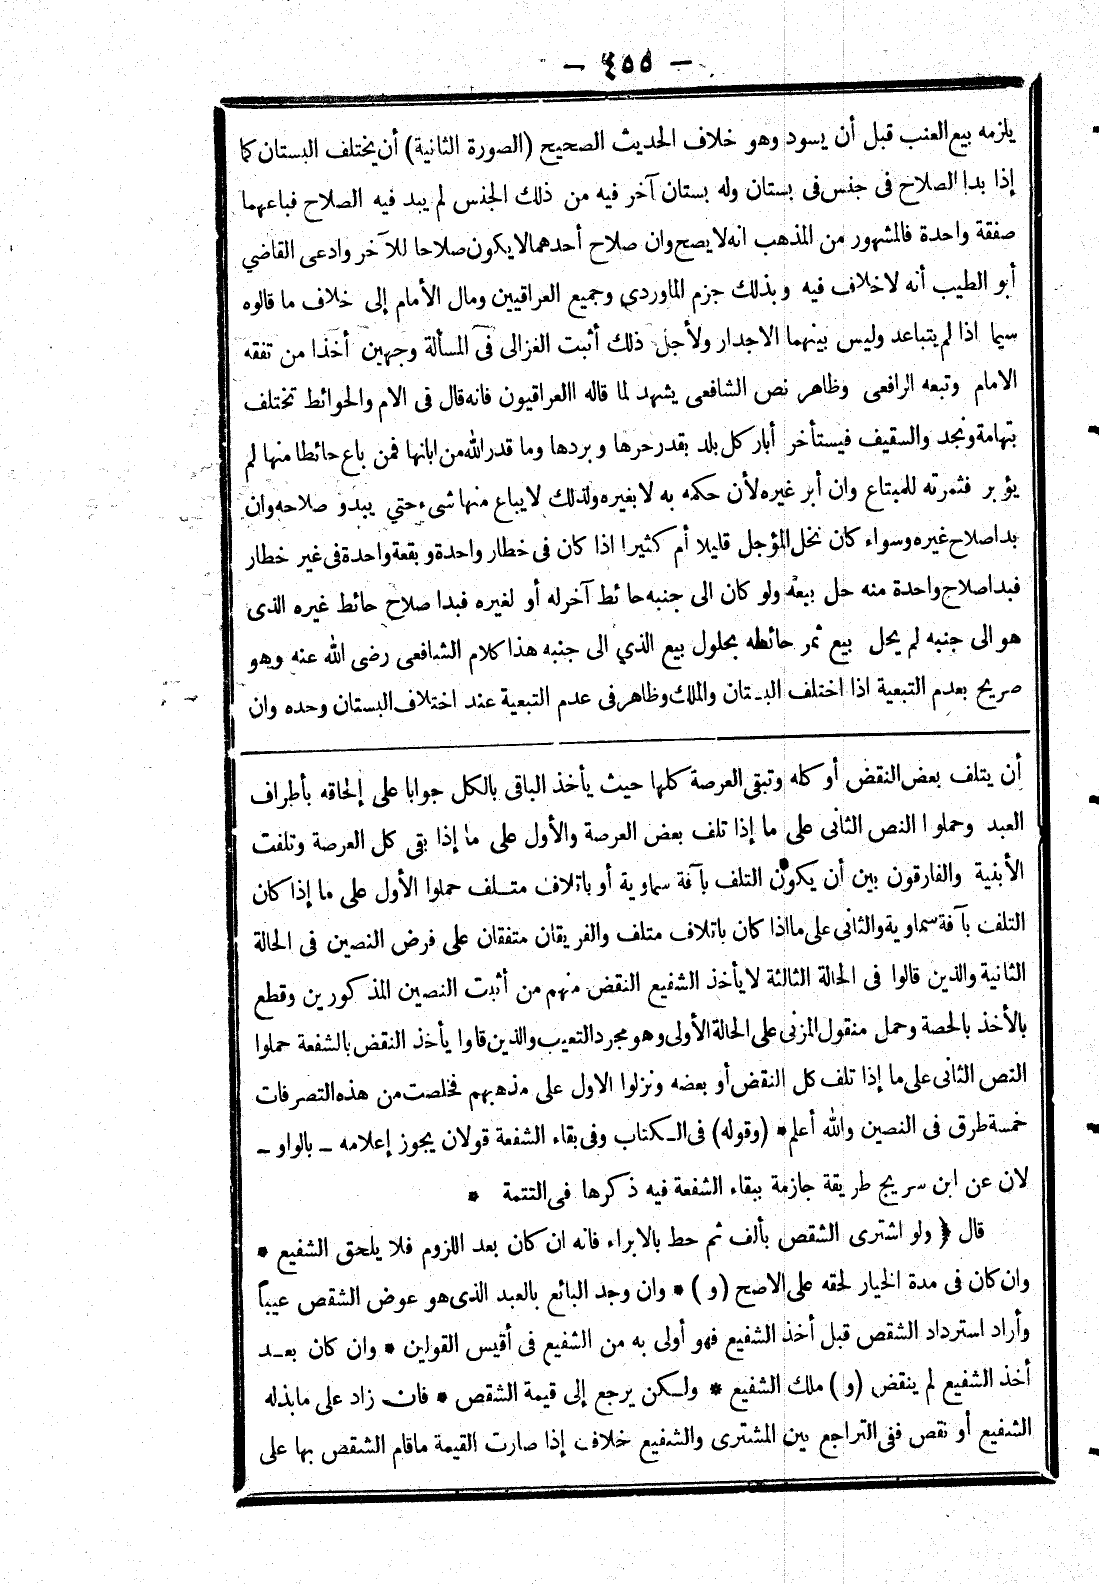 — ٤٥٥ —
يلزمه بيع العنب قبل أن يسود وهو خلاف الحديث الصحيح (الصورة الثانية) أن يختلف البستان كما
إذا بدا الصلاح فى جنس فى بستان وله بستان آخر فيه من ذلك الجنس لم يبد فيه الصلاح فباعهما
صفقة واحدة فالمشهور من المذهب انه لا يصح وان صلاح أحدهما لا يكون صلاحا للآخر وادعى القاضي
أبو الطيب أنه لا خلاف فيه وبذلك جزم الماوردي وجميع العراقيين ومال الأمام إلى خلاف ما قالوه
سيما اذا لم يتباعد وليس بينهما الاجدار ولأجل ذلك أثبت الغزالى فى المسألة وجهين أخذا من تفقه
الامام وتبعه الرافعى وظاهر نص الشافعى يشهد لما قاله االعراقيون فانه قال فى الام والحوائط تختلف
بتهامة ونجد والسقيف فيستأخر أبار كل بلد بقدر حرها وبردها وما قدر الله من ابانها فمن باع حائطا منها لم
يؤبر فثمرته للمبتاع وان أبر غيره لأن حكمه به لا بغيره ولذلك لا يباع منها شىء حتي يبدو صلاحه وان
بدا صلاح غيره وسواء كان نخل المؤجل قليلا أم كثيرا اذا كان فى خطار واحدة وبقعة واحدة فى غير خطار
فبدا صلاح واحدة منه حل بيعه ولو كان الى جنبه حائط آخر له أو لغيره فبدا صلاح حائط غيره الذى
هو الى جنبه لم يحل بيع ثمر حائطه بحلول بيع الذي الى جنبه هذا كلام الشافعى رضى الله عنه وهو
صريح بعدم التبعية اذا اختلف البستان والملك وظاهر فى عدم التبعية عند اختلاف البستان وحده وان
أن يتلف بعض النقض أو كله وتبقى العرصة كلها حيث يأخذ الباقى بالكل جوابا على إلحاقه بأطراف
العبد وحملوا النص الثانى على ما إذا تلف بعض العرصة والأول على ما إذا بقى كل العرصة وتلفت
الأبنية والفارقون بين أن يكون التلف بآفة سماوية أو باتلاف متلف حملوا الأول على ما إذا كان
التلف بآفة سماوية والثانى على ما اذا كان باتلاف متلف والفريقان متفقان على فرض النصين فى الحالة
الثانية والذين قالوا فى الحالة الثالثة لا يأخذ الشفيع النقض منهم من أثبت النصين المذكورين وقطع
بالأخذ بالحصة وحمل منقول المزنى على الحالة الأولى وهو مجرد التعيب والذين قاوا يأخذ النقض بالشفعة حملوا
النص الثانى على ما إذا تلف كل النقض أو بعضه ونزلوا الاول على مذهبهم فخلصت من هذه التصرفات
خمسة طرق فى النصين والله أعلم * (وقوله) فى الكتاب وفى بقاء الشفعة قولان يجوز إعلامه - بالواو -
لان عن ابن سريج طريقة جازمة ببقاء الشفعة فيه ذكرها فى التتمة *
قال ﴿ ولو اشترى الشقص بألف ثم حط بالابراء فانه ان كان بعد اللزوم فلا يلحق الشفيع *
وان كان فى مدة الخيار لحقه على الاصح (و) * وان وجد البائع بالعبد الذى هو عوض الشقص عيباً
وأراد استرداد الشقص قبل أخذ الشفيع فهو أولى به من الشفيع فى أقيس القولين * وان كان بعد
أخذ الشفيع لم ينقض (و) ملك الشفيع * ولكن يرجع إلى قيمة الشقص * فان زاد على ما بذله
الشفيع أو نقص ففى التراجع بين المشترى والشفيع خلاف إذا صارت القيمة ماقام الشقص بها على